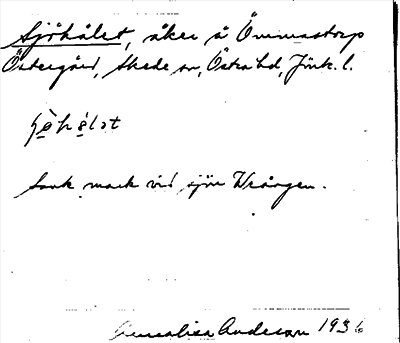 Sjöhålet, åker å Ömmestorp
Östergård, Skede sn, Östra hd, Jönk. l.
Sank mark vid sjön
Annalisa Anderson 1936